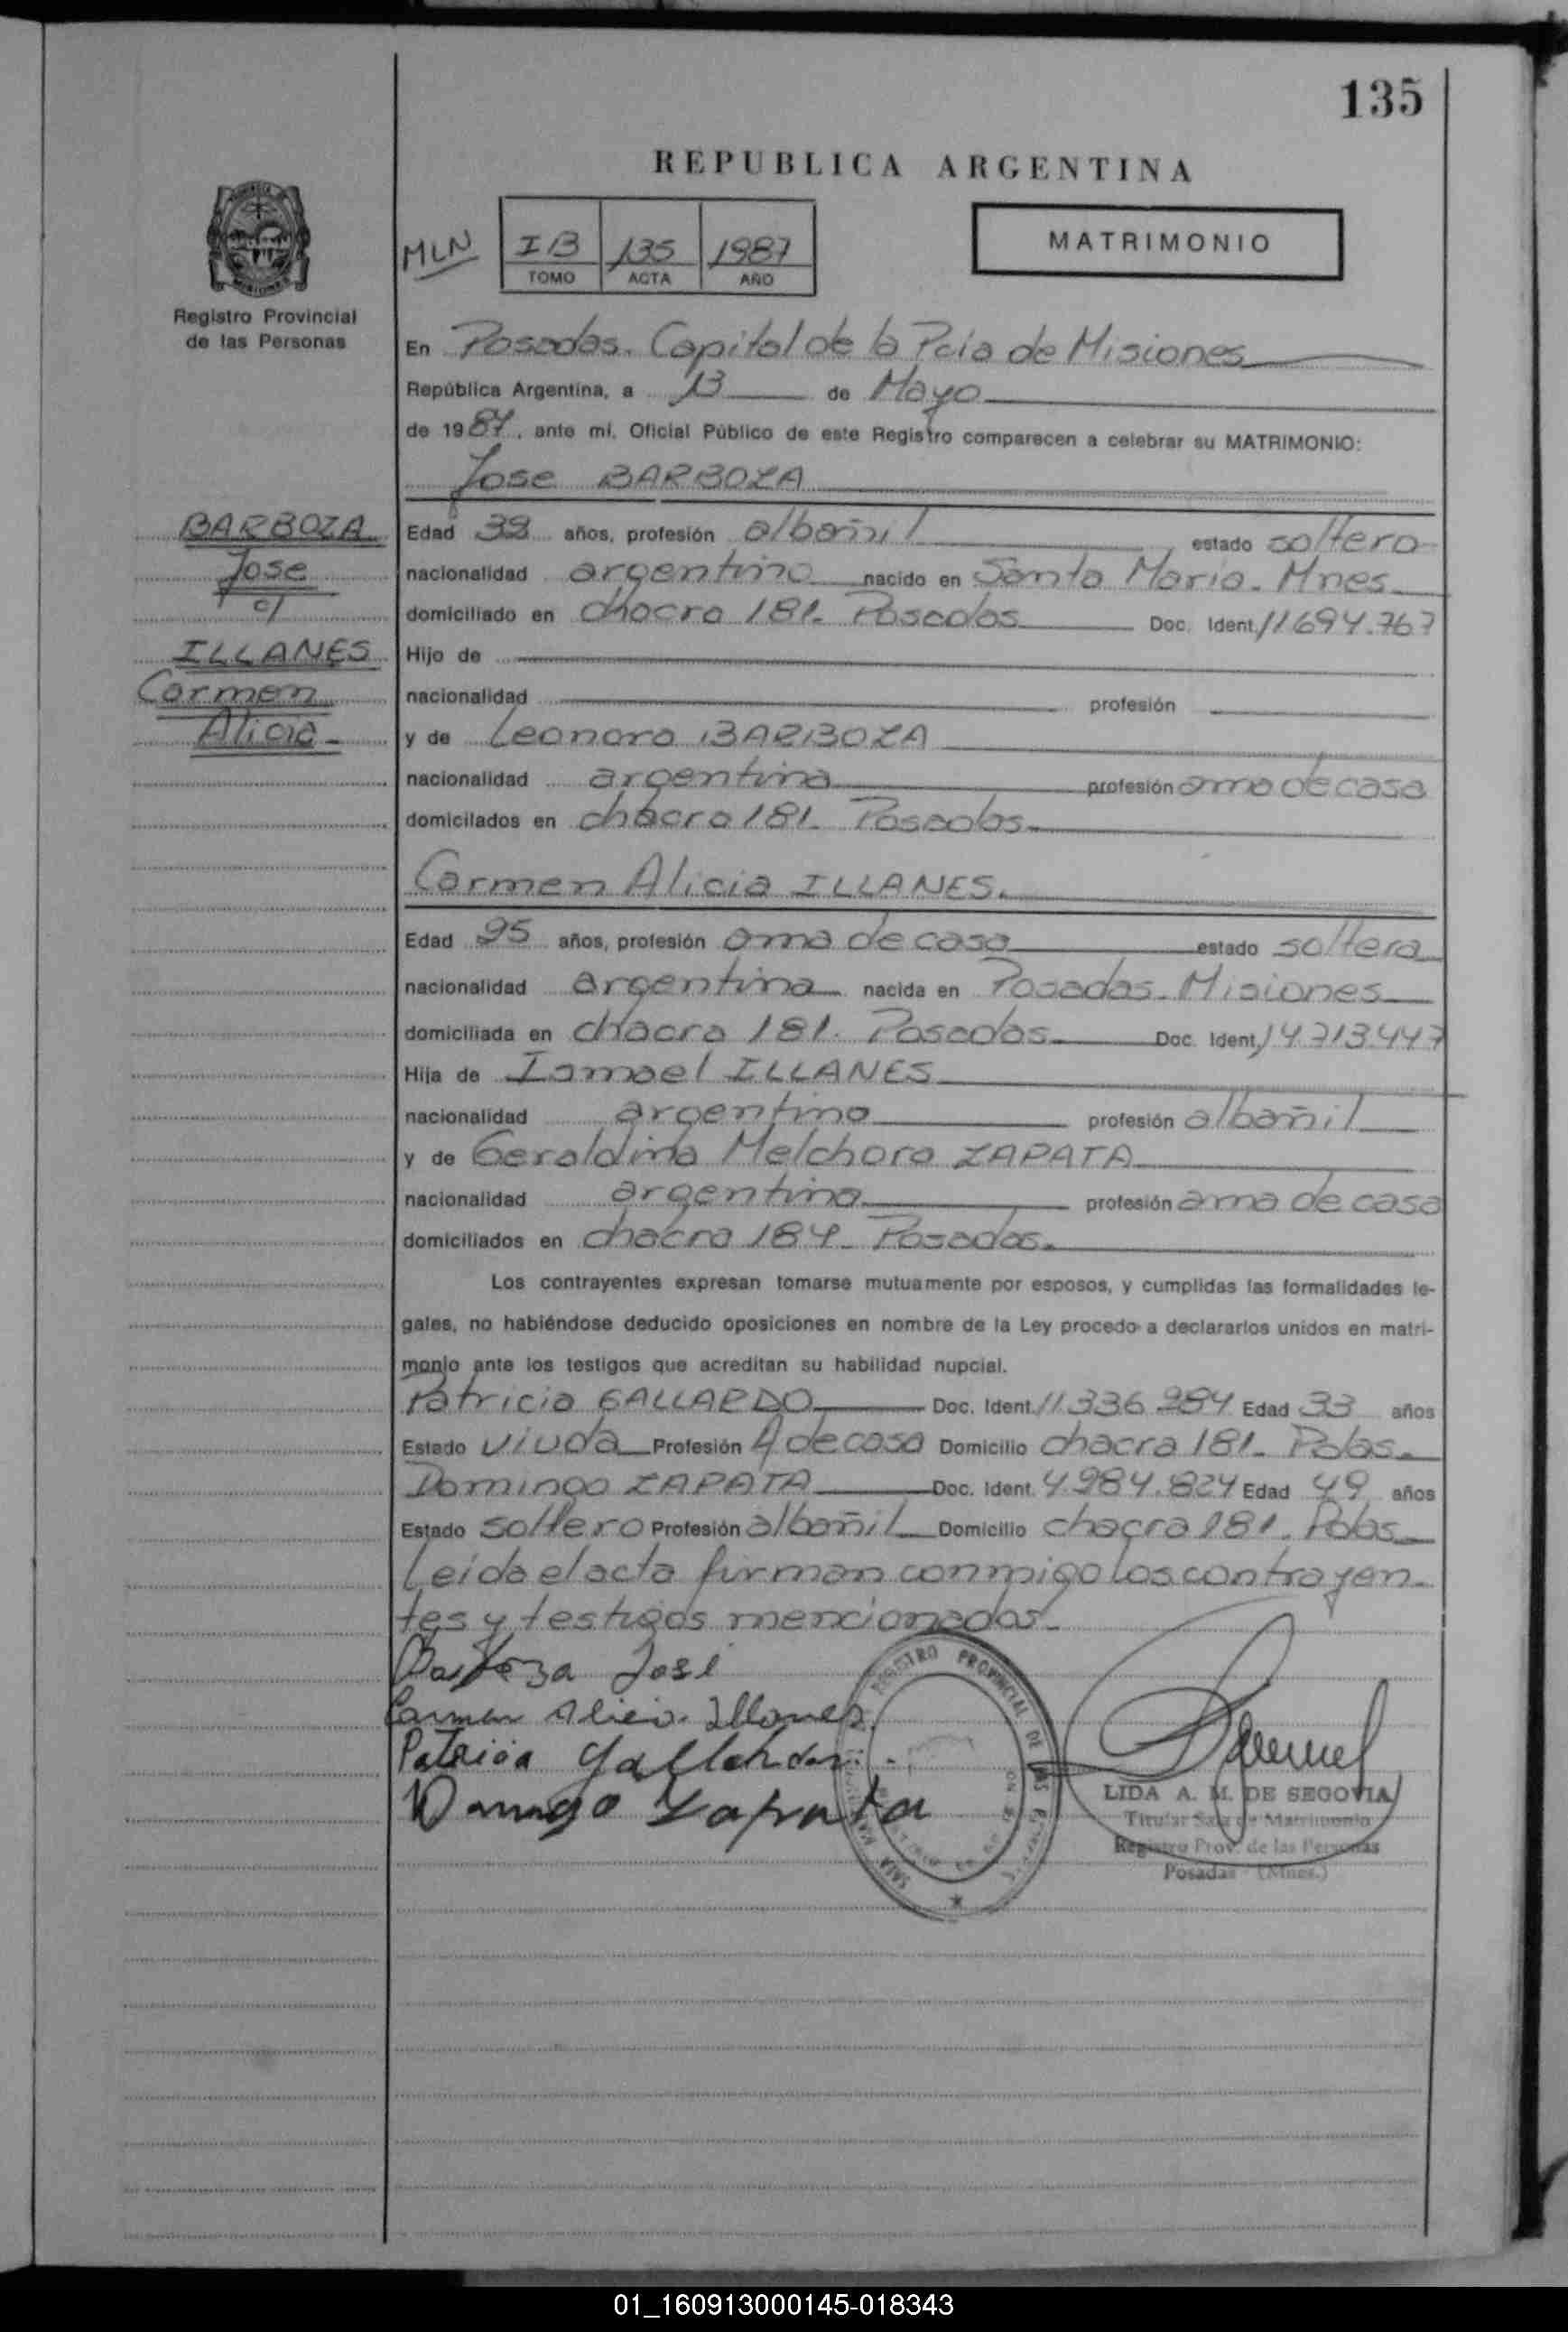 135
REPUBLICA ARGENTINA
MLN
IB 135 1987
TOMO ACTA AÑO
MATRIMONIO
Registro Provincial
de las Personas
En Posadas. Capital de la Pcia de Misiones
República Argentina, a 13 de Mayo
de 1987, ante mí, Oficial Público de este Registro comparecen a celebrar su MATRIMONIO:
Jose BARBOZA
BARBOZA
Jose
c/
ILLANES
Carmen
Alicia
Edad años, profesión albañil estado soltero
nacionalidad argentino nacido en Santa Maria. Mnes.
domiciliado en chacra 181. Posadas Doc. Ident. 11694.767
Hijo de
nacionalidad profesión
y de Leonora BARBOZA
nacionalidad argentina profesión ama de casa
domicilados en chacra 181. Posadas.
Carmen Alicia ILLANES.
Edad años, profesión ama de casa estado soltera
nacionalidad argentina nacida en Posadas. Misiones
domiciliada en chacra 181. Posadas Doc. Ident. 14.713.447
Hija de Ismael ILLANES
nacionalidad argentino profesión albañil
y de Geraldina Melchora ZAPATA
nacionalidad argentina profesión ama de casa
domiciliados en chacra 184. Posadas.
Los contrayentes expresan tomarse mutuamente por esposos, y cumplidas las formalidades le-
gales, no habiéndose deducido oposiciones en nombre de la Ley procedo a declararlos unidos en matri-
monio ante los testigos que acreditan su habilidad nupcial.
Patricia GALLARDO Doc. Ident. 11.336.984 Edad 33 años
Estado viuda Profesión A de casa Domicilio chacra 181. Pdas.
Domingo ZAPATA Doc. Ident. 4.984.824 Edad 49 años
Estado soltero Profesión albañil Domicilio chacra 181. Pdas
Leida el acta firman conmigo los contrayen-
tes y testigos mencionados.
Barboza José
Carmen Alicia Illanes
Patricia
Domingo Zapata
REGISTRO PROVINCIAL DE LAS
SALA
LIDA A. M. DE SEGOVIA
Titular Sala de Matrimonio
Registro Prov. de las Personas
Posadas (Mnes.)
01_160913000145-018343